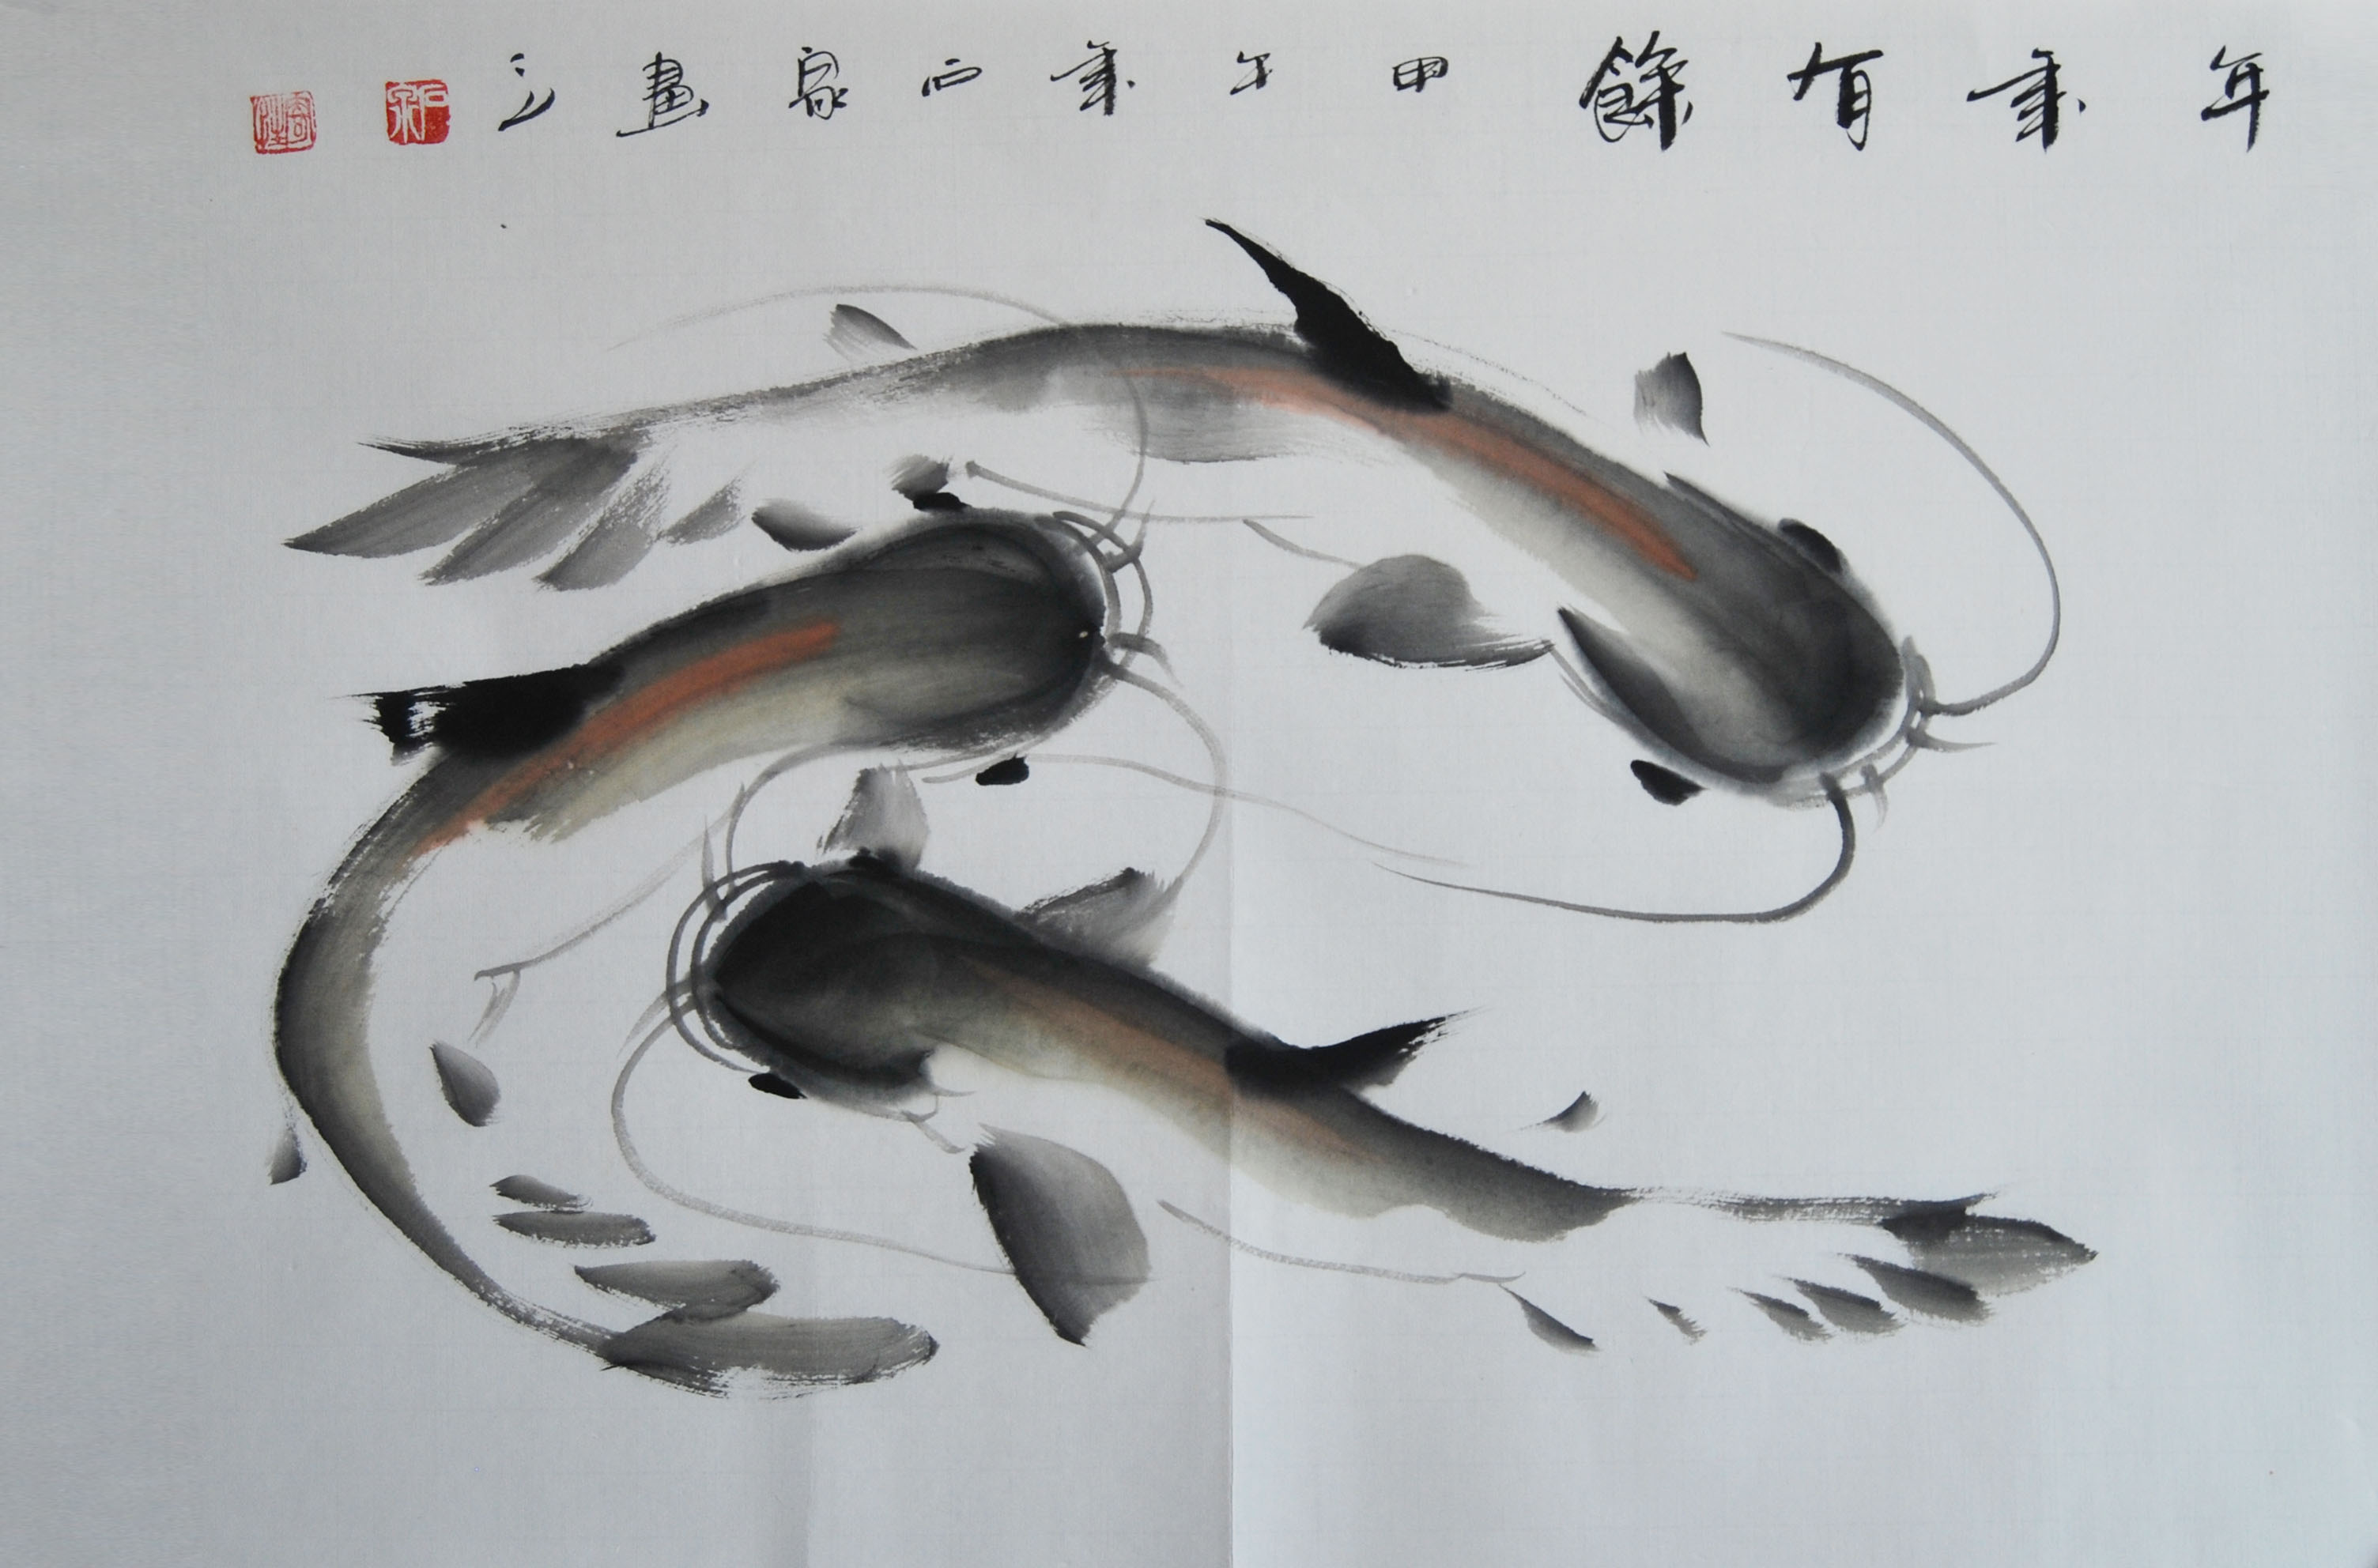 年年有餘甲午年西泉畫之